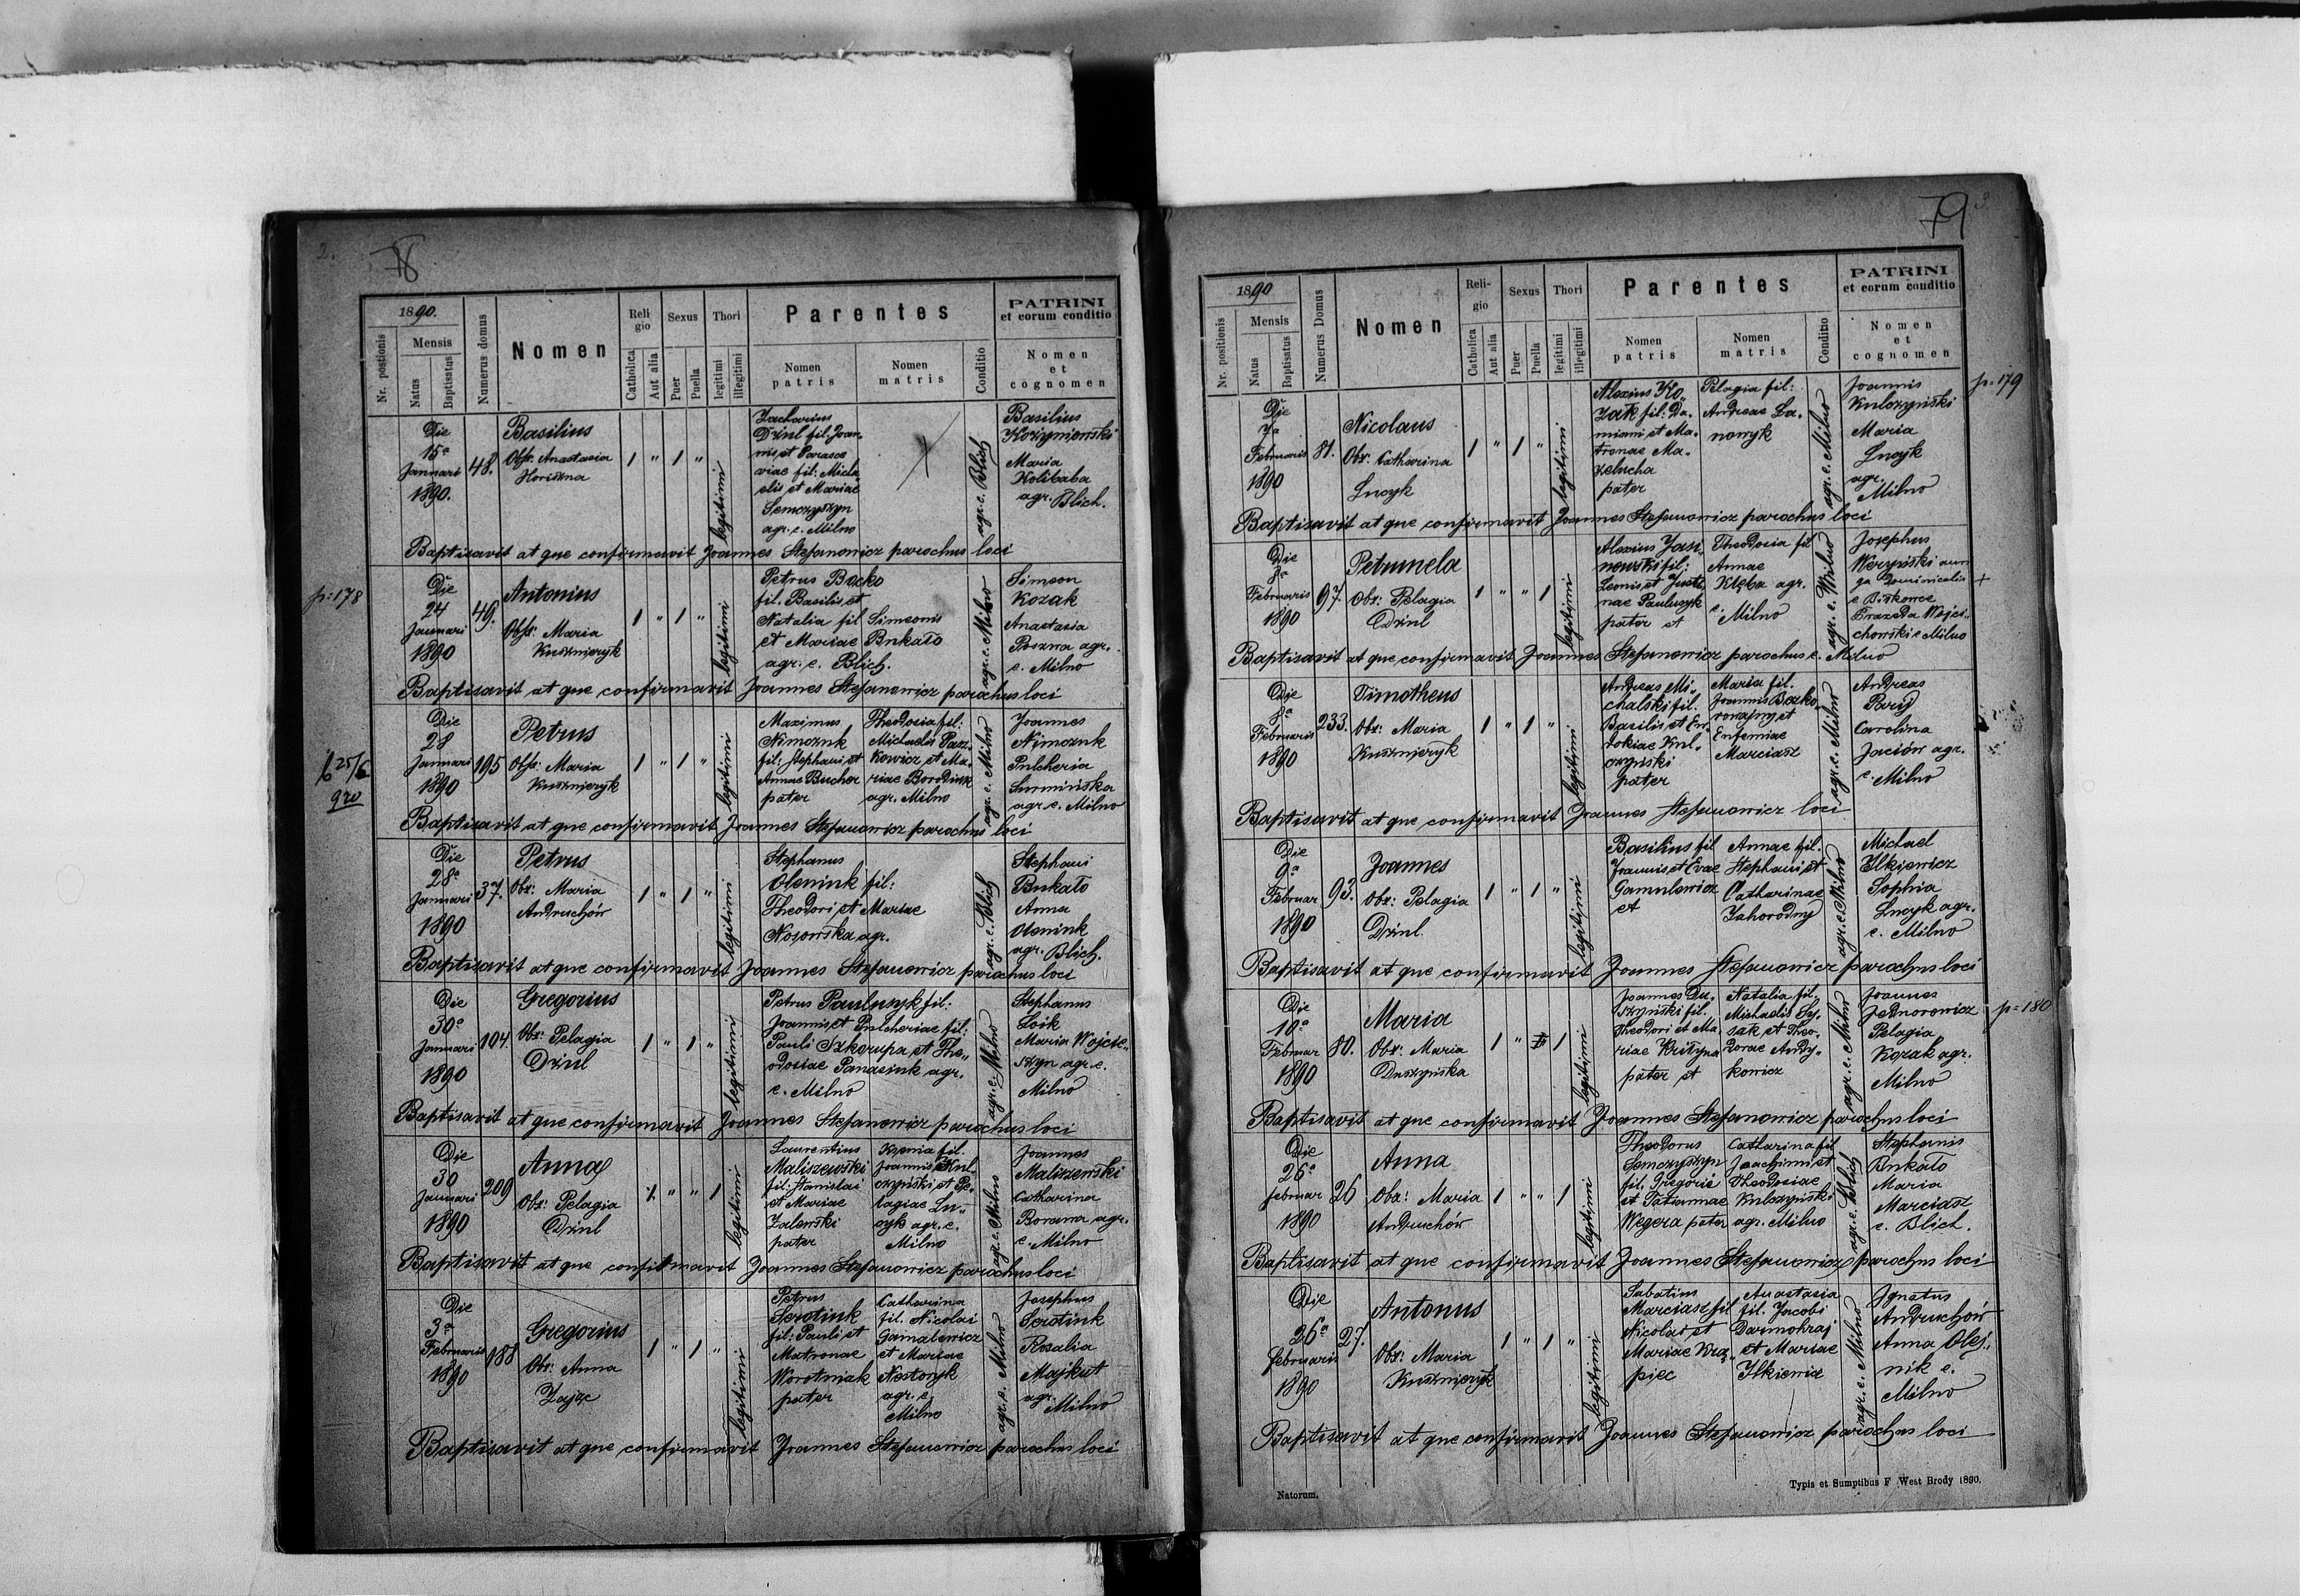 2.
78
1890.
Nr. postionis
Mensis
Natus
Baptisatus
Numerus domus
Nomen
Reli
gio
Catholica
Aut alia
Sexus
Puer
Puella
Thori
legitimi
illegitimi
Parentes
Nomen
patris
Nomen
matris
Conditio
PATRINI
et eorum conditio
Nomen
et
cognomen
Die
15ª
Januari
1890.
48.
Basilius
Obst. Anastasia
1 " 1 "
legitimi
Zacharius
Dziul fil. Joan
nis et Parasce
viae fil: Micha
elis et Mariae
Semczyszyn
agr. e. Milno
agr. e. Blich
Basilius
Maria
Kolibaba
agr. Blich.
Baptisavit at que confirmavit Joannes Stefanowicz parochus loci
p: 178
Die
24
Januari
1890
49.
Antonius
Obst: Maria
Kusznieryk
1 " 1 "
legitimi
Petrus Bocko
fil. Basilii et
Natalia fil Simeonis
et Mariae Bukato
agr. e. Blich.
agr. e. Milno
Simeon
Kozak
Anastasia
agr.
e. Milno
Baptisavit at que confirmavit Joannes Stefanowicz parochus loci
Die
28
Januari
1890
195
Petrus
Obst: Maria
Kusznieryk
1 " 1 "
legitimi
Maximus
Nimczuk
fil: Stephani et
Annae Bucher
pater
Theodosia fil:
Michaelis Pasz
kowicz et Ma
riae Borodiuk
agr. Milno
agr. e. Milno
Joannes
Nimczuk
Pulcheria
Surmińska
agr. e. Milno
Baptisavit at que confirmavit Joannes Stefanowicz parochus loci
Die
28ª
Januari
1890
37.
Petrus
Obs: Maria
Andruchów
1 " 1 "
legitimi
Stephanus
Oleniuk fil:
Theodori et Mariae
Nosowska agr.
agr. e. Blich
Stephani
Bukato
Anna
Oleniuk
agr. Blich.
Baptisavit at que confirmavit Joannes Stefanowicz parochus loci
Die
30ª
Januari
1890
104.
Gregorius
Obs: Pelagia
Dziul
1 " 1 "
legitimi
Petrus Paulusyk fil:
Joannis et Pulcheriae fil:
Pauli Szkorupa et The
odosiae Panasiuk agr.
e. Milno
agr. e. Milno
Stephanus
Loik
Maria Wojcie
szyn agr. e.
Milno
Baptisavit at que confirmavit Joannes Stefanowicz parochus loci
Die
30
Januari
1890
209
Anna
Obs: Pelagia
Dziul
1 " " 1
legitimi
Laurentius
Maliszewski
fil: Stanislai
et Mariae
Zalewski
pater
Ksenia fil.
Joannis Kul
czyński et Pe
lagiae Lu
cyk agr. e.
Milno
agr. e. Milno
Joannes
Maliszewski
Catharina
agr.
e. Milno
Baptisavit at que confirmavit Joannes Stefanowicz parochus loci
Die
3ª
Februaris
1890
188
Gregorius
Obs: Anna
Zajac
1 " 1 "
legitimi
Petrus
Serotiuk
fil: Pauli et
Matronae
Worotniak
pater
Catharina
fil. Nicolai
Gamalewicz
et Mariae
Nestoryk
agr. e.
Milno
agr. e. Milno
Josephus
Serotiuk
Rosalia
Majkut
agr.
Milno
Baptisavit at que confirmavit Joannes Stefanowicz parochus loci
79
3.
1890
Nr. positionis
Mensis
Natus
Baptisatus
Numerus Domus
Nomen
Reli-
gio
Catholica
Aut alia
Sexus
Puer
Puella
Thori
legitimi
illegitimi
Parentes
Nomen
patris
Nomen
matris
Conditio
PATRINI
et eorum conditio
Nomen
et
cognomen
p: 179
Die
7ª
Februaris
1890
81.
Nicolaus
Obs: Catharina
Lucyk
1 " 1 "
legitimi
Alexius Ko
zak fil: Da
miani et Ma
tronae Ma
zelucha
pater
Pelagia fil:
Andreae La
nowyk
agr. e. Milno
Joannis
Kulczyński
Maria
Lucyk
agr.
Milno
Baptisavit at que confirmavit Joannes Stefanowicz parochus loci
Die
Februaris
1890
97.
Petrunela
Obs: Pelagia
Dziul
1 " " 1
legitimi
Alexius Jasi
nowski fil:
Leonis et Justi
nae Paulusyk
pater et
Theodosia fil
Annae
Klęba agr.
e. Milno
agr. e. Milno
Josephus
Werzyński auri
ga Dominicalis
Wojcie
chowski e Milno
Baptisavit at que confirmavit Joannes Stefanowicz parochus e. Milno
Die
8ª
Februaris
1890
233.
Timotheus
Obs: Maria
Kusznieryk
1 " 1 "
legitimi
Andreas Mi
chalski fil.
Basilii et Ew
dokiae Kul
czyński
pater
Maria fil.
Joannis
et
Eufemiae
Marciasz
agr. e. Milno
Andreas
Carolina
Jaciów agr.
e. Milno
Baptisavit at que confirmavit Joannes Stefanowicz loci
Die
9ª
Februar
1890
93.
Joannes
Obs: Pelagia
Dziul.
1 " 1 "
legitimi
Basilius fil
Joannis et Evae
Gamulewicz
et
Annae fil.
Stephani et
Catharinae
Zahorodny
agr. e. Milno
Michael
Ilkiewicz
Sophia
Lucyk agr.
e. Milno
Baptisavit at que confirmavit Joannes Stefanowicz parochus loci
p: 180
Die
10ª
Februar
1890
80.
Maria
Obs: Maria
Duszyńska
1 " 1
legitimi
Joannes Du
szyński fil.
Theodori et Ma
riae
pater et
Natalia fil.
Michaelis Sy
sak et Theo
dorae Andy
kowicz
agr. e. Milno
Joannes
Jednorowicz
Pelagia
Kozak agr.
Milno
Baptisavit at que confirmavit Joannes Stefanowicz parochus loci
Die
26ª
Februar
1890
26
Anna
Obs: Maria
Andruchów
1 " " 1
legitimi
Theodorus
Semczyszyn
fil. Gregorii
et Tatiannae
Wegera pater
Catharina fil
Joachimi et
Theodosiae
Kulczyński
agr. Milno
agr. e. Blich
Stephanis
Bukato
Maria
Marciasz
e. Blich.
Baptisavit at que confirmavit Joannes Stefanowicz parochus loci
Die
26ª
Februaris
1890
27.
Antonus
Obs: Maria
Kusznieryk
1 " 1 "
legitimi
Sabatius
Marciasz fil
Nicolai et
Mariae Krą
piec
Anastasia
fil. Jacobi
Darmohraj
et Mariae
Ilkiewicz
agr. e. Milno
Ignatus
Andruchów
Anna Olej
nik e.
Milno
Baptisavit at que confirmavit Joannes Stefanowicz parochus loci
Natorum.
Typis et Sumptibus F. West Brody 1890.